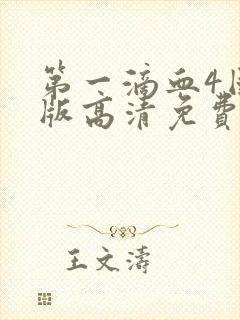 第一滴血4
版高清免费
王文涛